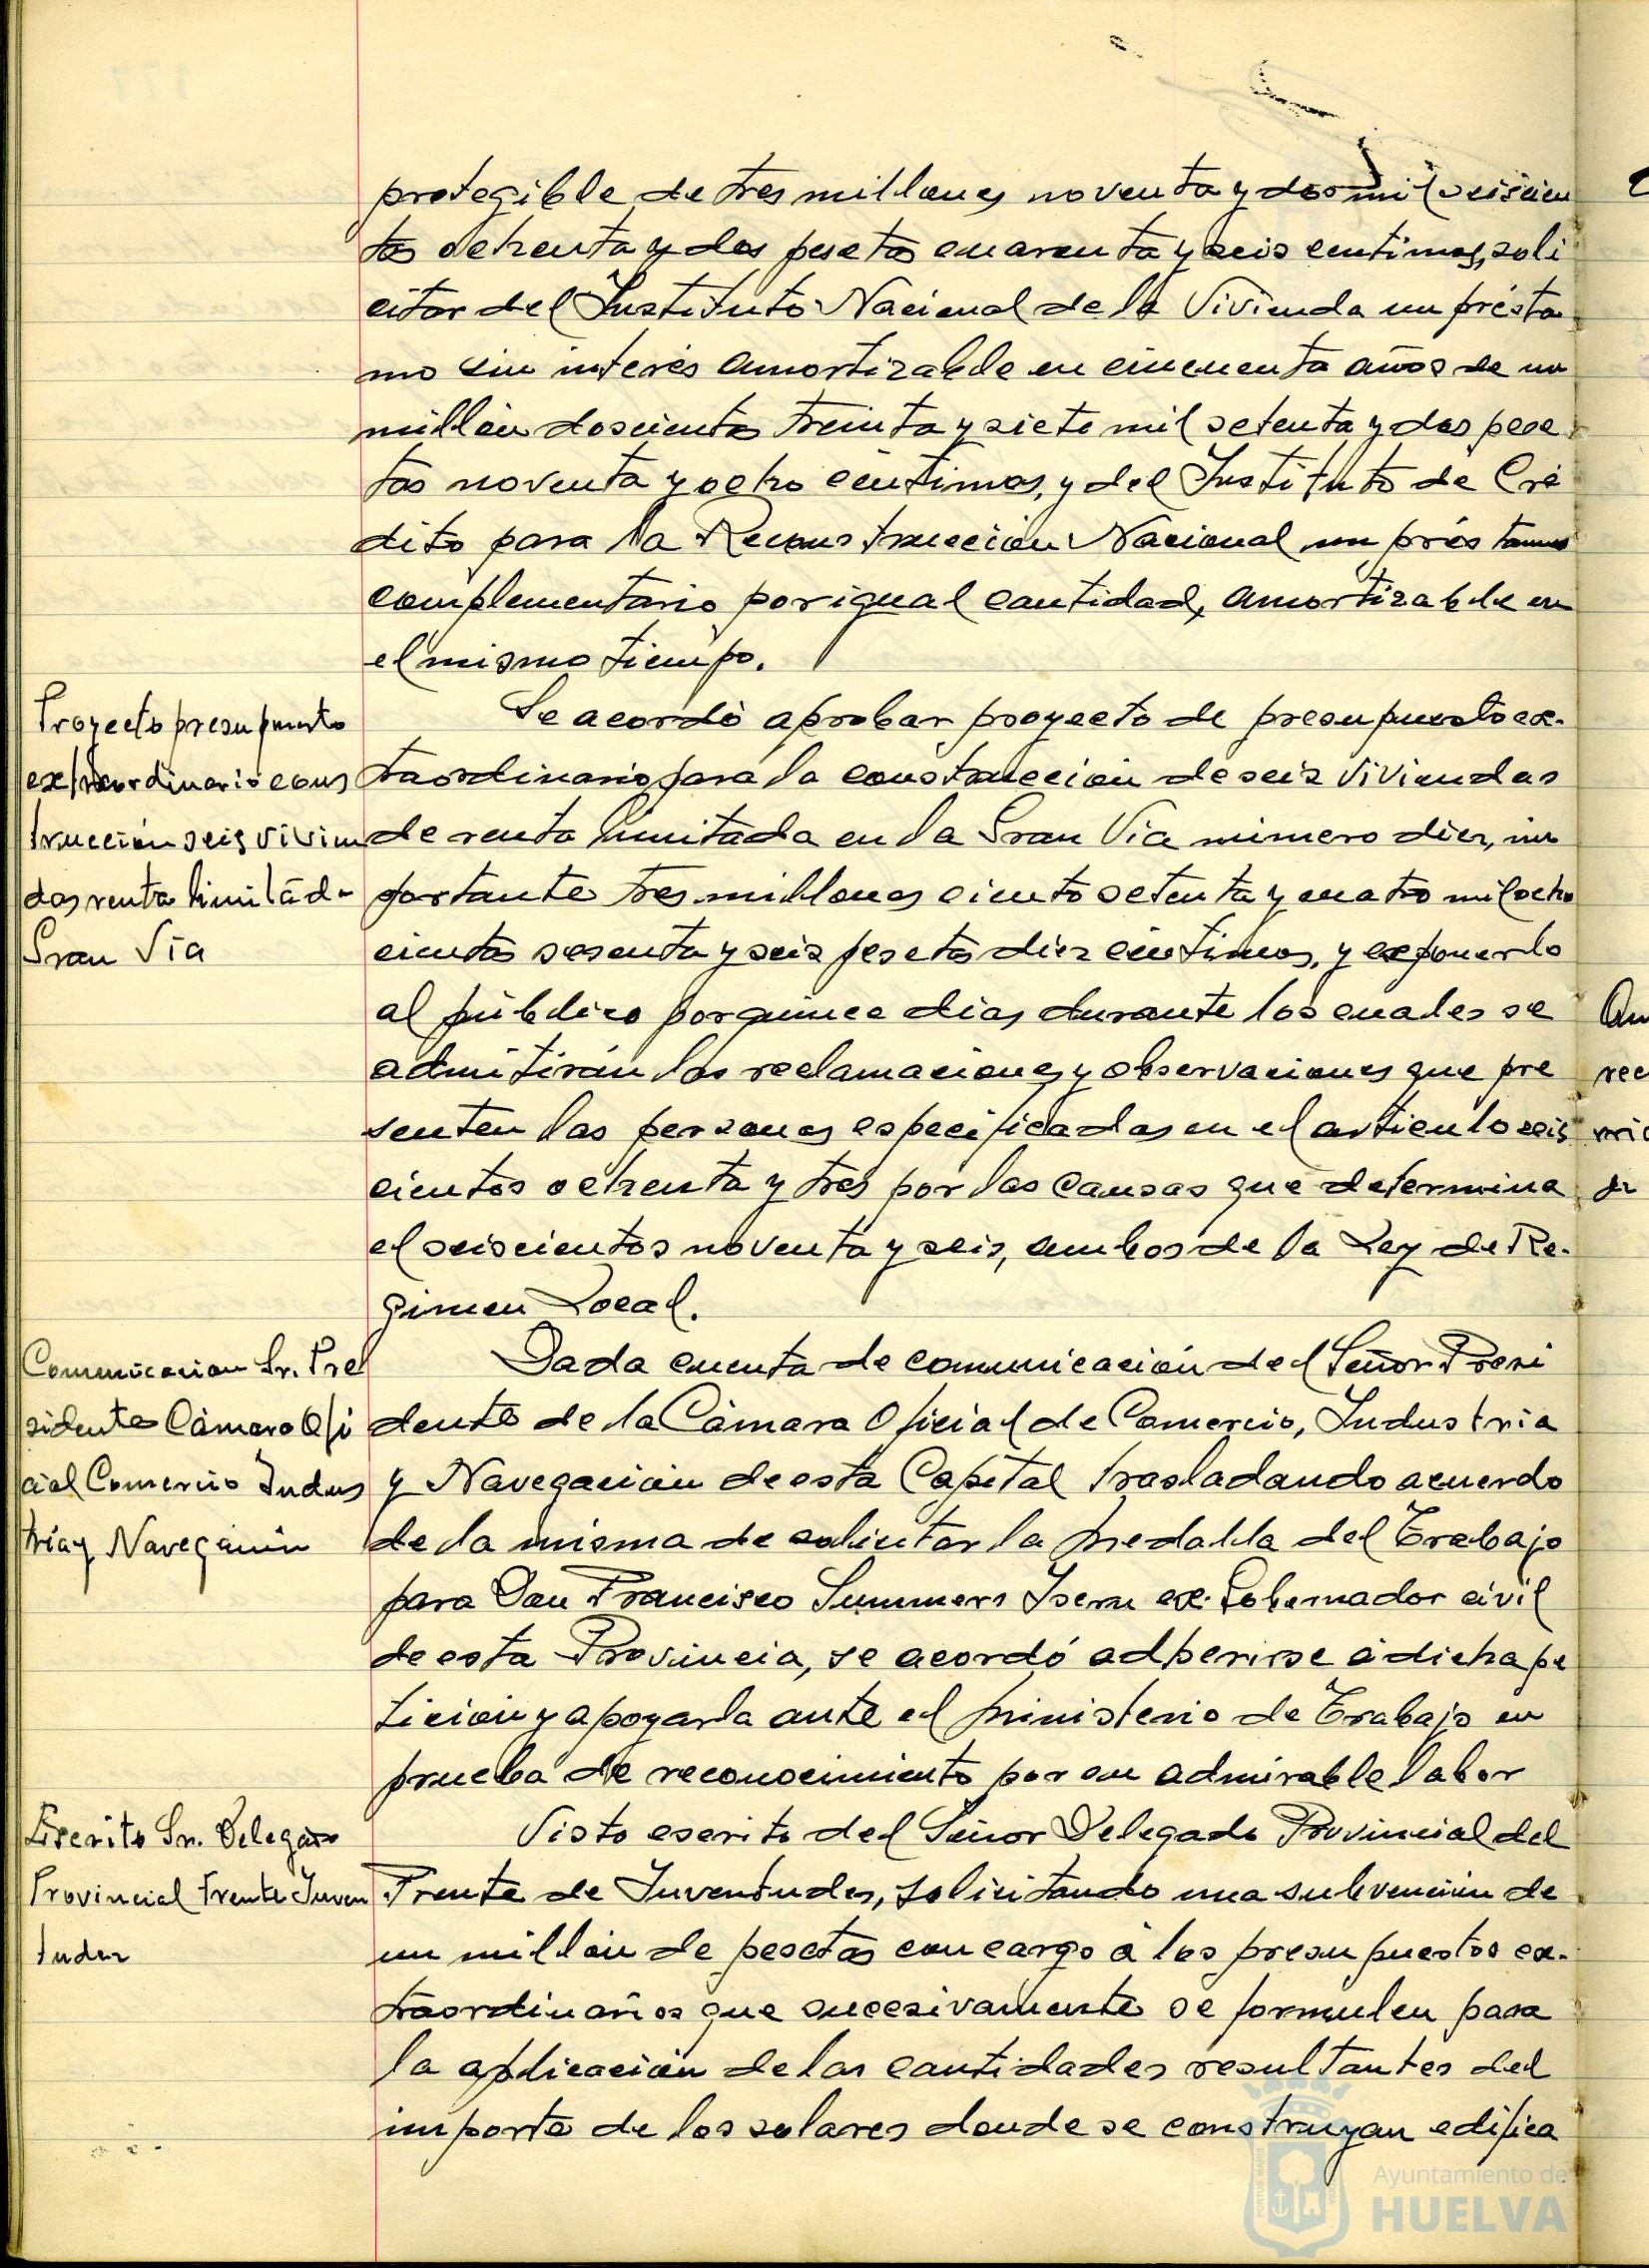 protegible de tres millones noventa y dos mil seiscien
tas ochenta y dos pesetas cuarenta y seis centimos, soli
citar del Instituto Nacional de la Vivienda un présta
mo sin interés amortizable en cincuenta años de un
millón doscientas treinta y siete mil setenta y dos pese
tas noventa y ocho céntimos, y del Instituto de Cré
dito para la Reconstrucción Nacional un préstamo
complementario por igual cantidad, amortizable en
el mismo tiempo.
Proyecto presupuesto
extraordinario cons
trucción seis vivien
das renta limitada
Gran Vía
Se acordó aprobar proyecto de presupuesto ex-
traordinario para la construcción de seis viviendas
de renta limitada en la Gran Via número diez, im
portante tres millones ciento setenta y cuatro mil ocho
cientas sesenta y seis pesetas diez céntimos, y exponerlo
al público por quince días durante los cuales se
admitirán las reclamaciones y observaciones que pre
senten las personas especificadas en el artículo seis
cientos ochenta y tres por las causas que determina
el seiscientos noventa y seis, ambos de la Ley de Re-
gimen Local.
Comunicacion Sr. Pre
sidente Cámara Ofi
cial Comercio Indus
tria y Navegación
Dada cuenta de comunicación del Señor Presi
dente de la Cámara Oficial de Comercio, Industria
y Navegación de esta Capital trasladando acuerdo
de la misma de solicitar la Medalla del Trabajo
para Don Francisco Summers Isern ex-Gobernador civil
de esta Provincia, se acordó adherirse a dicha pe
ticion y apoyarla ante el Ministerio de Trabajo en
prueba de reconocimiento por su admirable labor
Escrito Sr. Delegado
Provincial Frente Juven
tudes
Visto escrito del Señor Delegado Provincial del
Frente de Juventudes, solicitando una subvención de
un millón de pesetas con cargo á los presupuestos ex-
traordinarios que sucesivamente se formulen para
la aplicación de las cantidades resultantes del
importe de los solares donde se construyan edifica
Ayuntamiento de
HUELVA